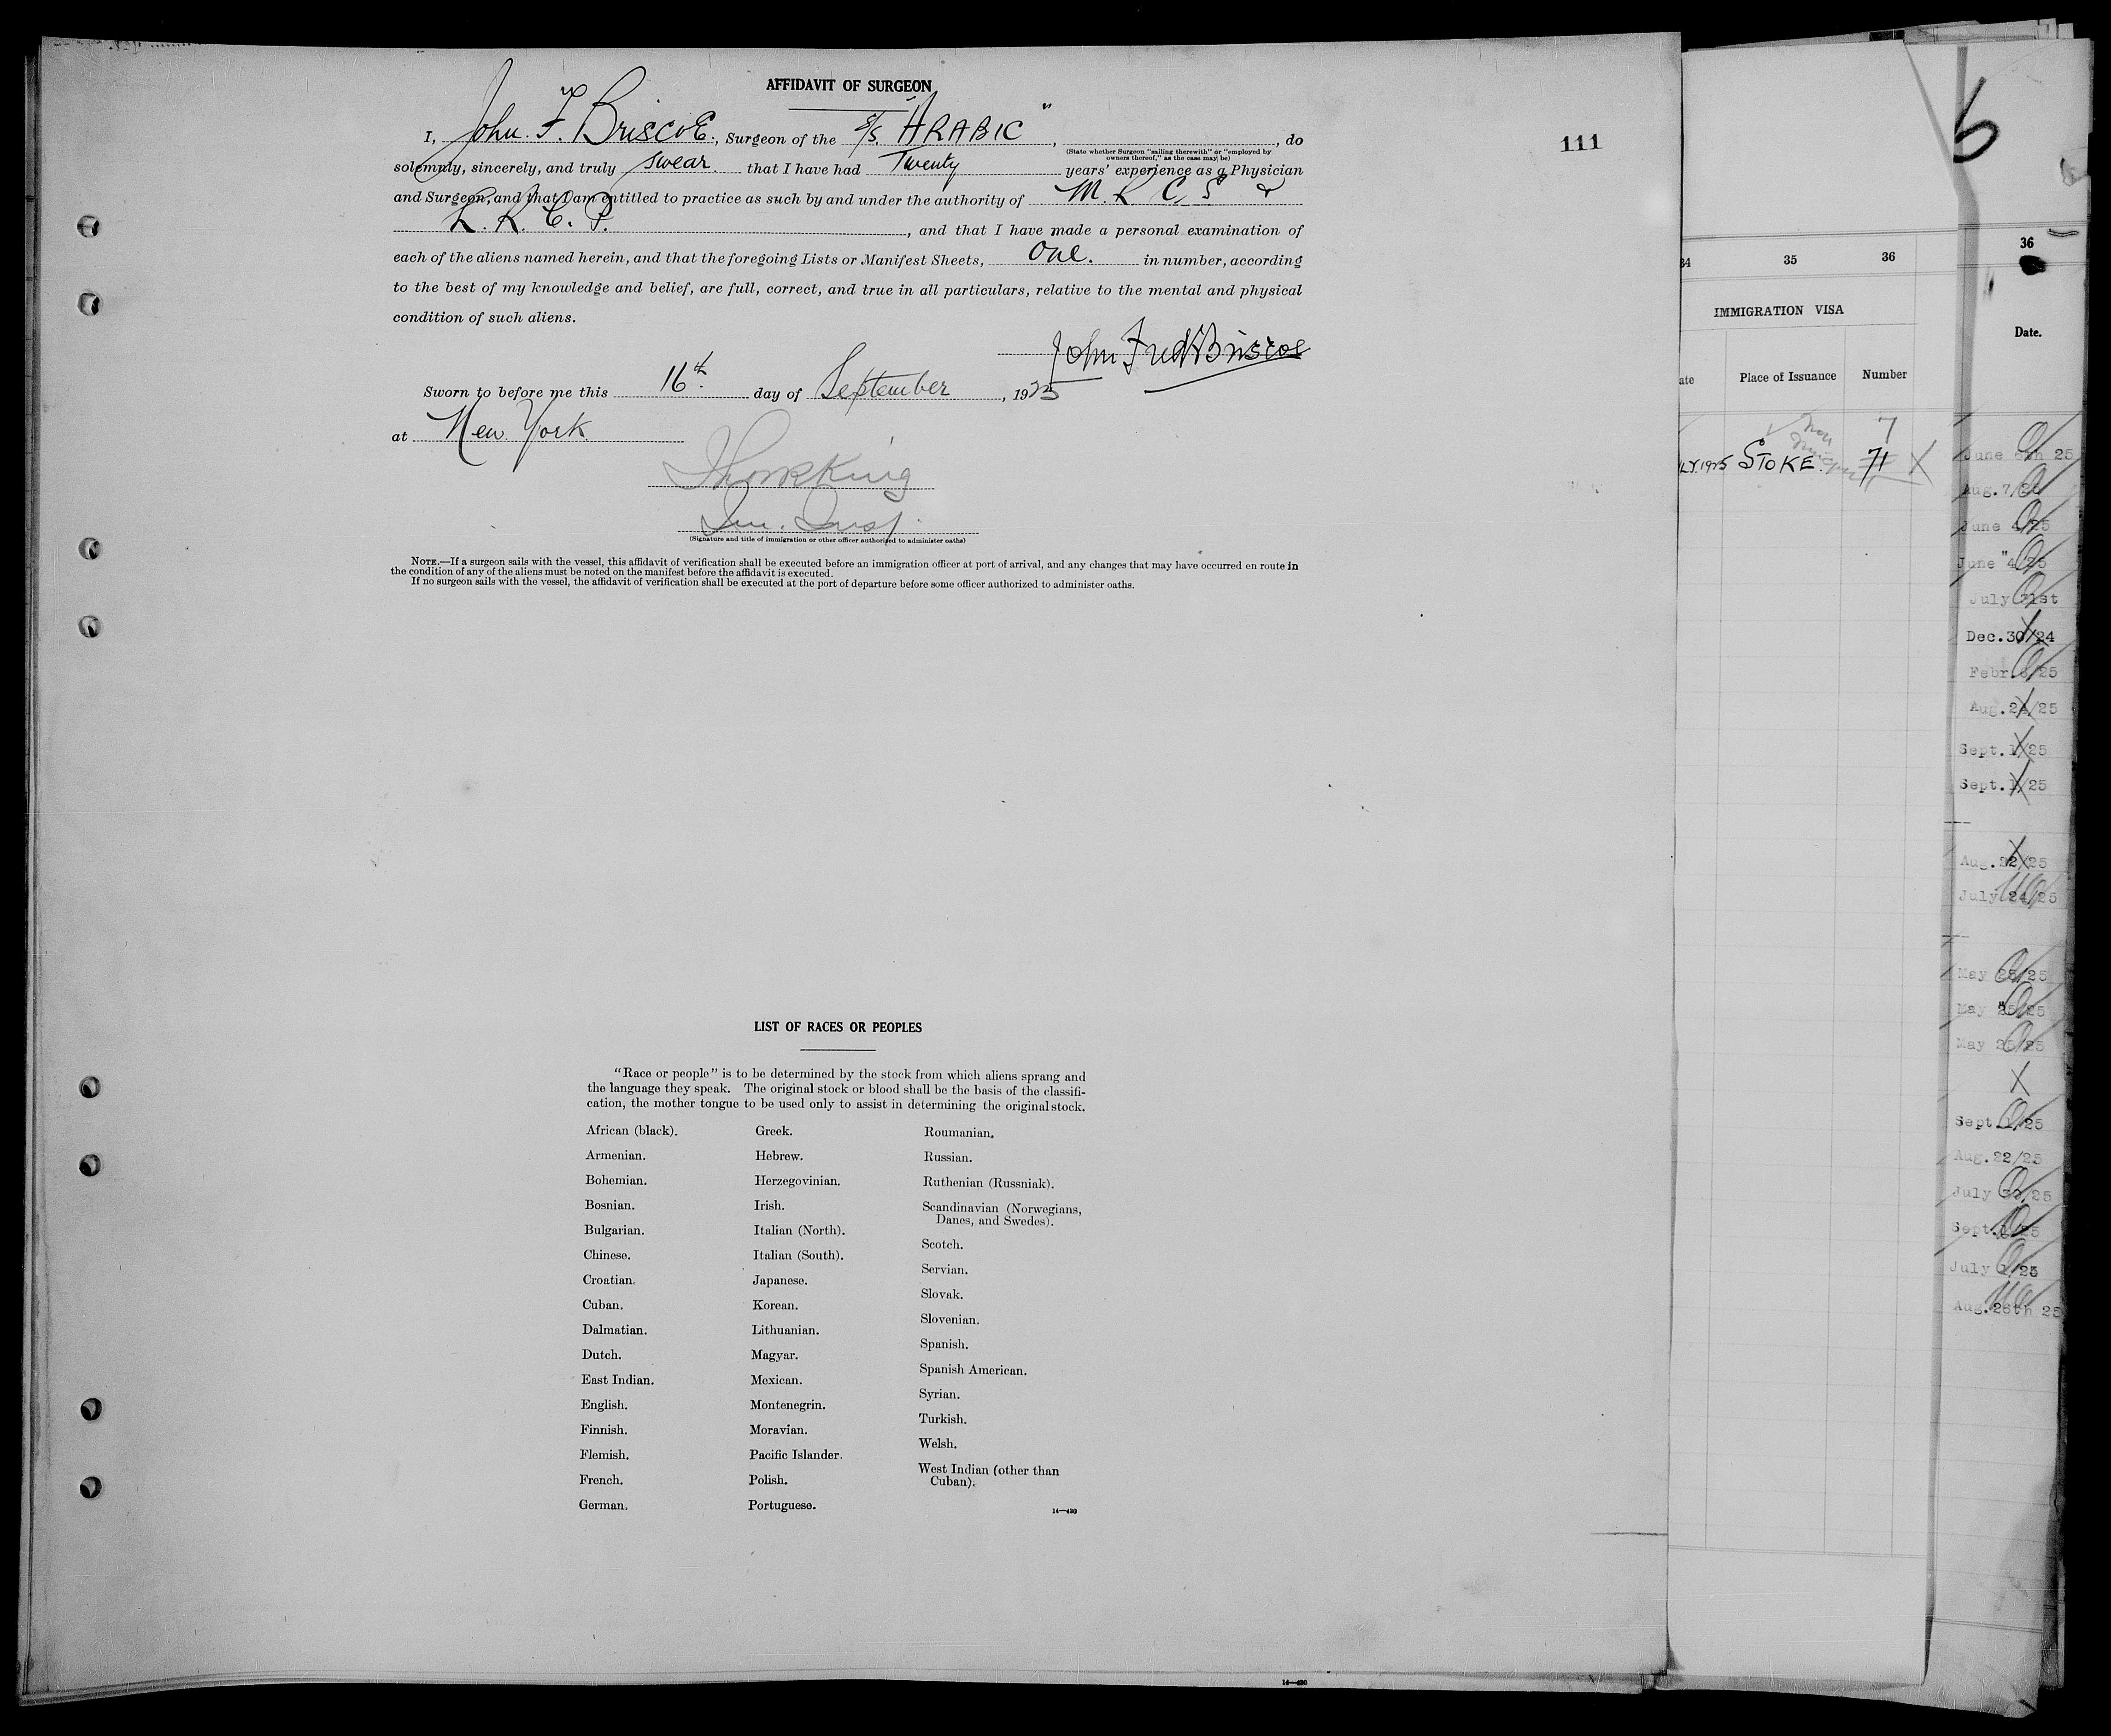 AFFIDAVIT OF SURGEON
I, John. F. Briscoe., Surgeon of the s/s. "ARABIC", , do
(State whether Surgeon "sailing therewith" or "employed by
owners thereof," as the case may be)
solemnly, sincerely, and truly swear. that I have had Twenty years' experience as a Physician
and Surgeon, and that I am entitled to practice as such by and under the authority of M. R. C. S &
L. R. C. P. , and that I have made a personal examination of
each of the aliens named herein, and that the foregoing Lists or Manifest Sheets, One. in number, according
to the best of my knowledge and belief, are full, correct, and true in all particulars, relative to the mental and physical
condition of such aliens.
John Fredk Briscoe
Sworn to before me this 16th. day of September, 1925
at New York
Imm. Insp.
(Signature and title of immigration or other officer authorized to administer oaths)
NOTE.—If a surgeon sails with the vessel, this affidavit of verification shall be executed before an immigration officer at port of arrival, and any changes that may have occurred en route in
the condition of any of the aliens must be noted on the manifest before the affidavit is executed.
If no surgeon sails with the vessel, the affidavit of verification shall be executed at the port of departure before some officer authorized to administer oaths.
111
LIST OF RACES OR PEOPLES
"Race or people" is to be determined by the stock from which aliens sprang and
the language they speak. The original stock or blood shall be the basis of the classifi-
cation, the mother tongue to be used only to assist in determining the original stock.
African (black).
Armenian.
Bohemian.
Bosnian.
Bulgarian.
Chinese.
Croatian.
Cuban.
Dalmatian.
Dutch.
East Indian.
English.
Finnish.
Flemish.
French.
German.
Greek.
Hebrew.
Herzegovinian.
Irish.
Italian (North).
Italian (South).
Japanese.
Korean.
Lithuanian.
Magyar.
Mexican.
Montenegrin.
Moravian.
Pacific Islander.
Polish.
Portuguese.
Roumanian.
Russian.
Ruthenian (Russniak).
Scandinavian (Norwegians,
Danes, and Swedes).
Scotch.
Servian.
Slovak.
Slovenian.
Spanish.
Spanish American.
Syrian.
Turkish.
Welsh.
West Indian (other than
Cuban).
14—430
14—430
34 35 36
IMMIGRATION VISA
ate Place of Issuance Number
7
LY.1925 STOKE. 71 X
6
36
Date.
June 25
Aug.7/25
June 4/25
June 4/25
July 31st
Dec.30/24
Febr. /25
Aug.24/25
Sept.1/25
Sept.1/25
Aug.22/25
July 24/25
May 25/25
May 25/25
May 25/25
X
Sept.1/25
Aug.22/25
July /25
Sept. /25
July 1/25
Aug.26th 25